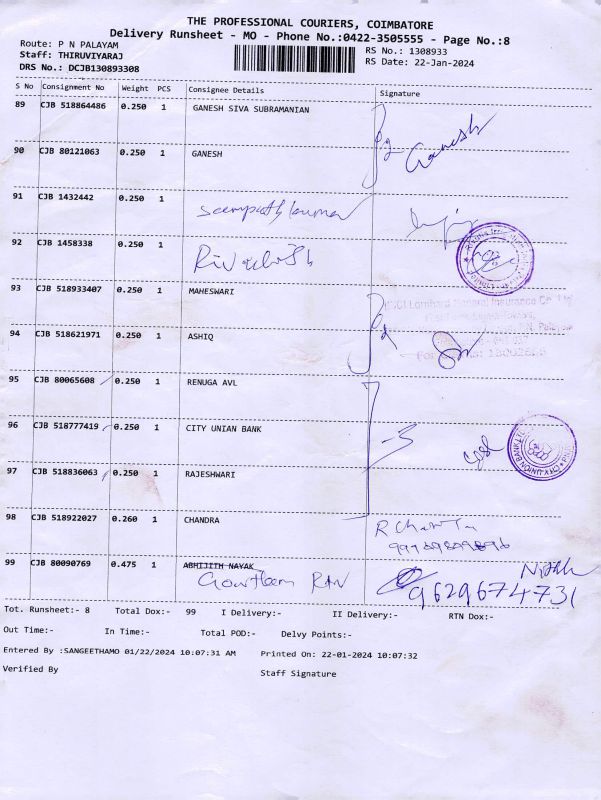 THE PROFESSIONAL COURIERS, COIMBATORE
Delivery Runsheet - MO - Phone No.:0422-3505555 - Page No.:8
Route: P N PALAYAM
RS No.: 1308933
Staff: THIRUVIYARAJ
RS Date: 22-Jan-2024
DRS No.: DCJB130893308
S No Consignment No Weight PCS Consignee Details Signature
89 CJB 518864486 0.250 1 GANESH SIVA SUBRAMANIAN
Ganesh
90 CJB 80121063 0.250 1 GANESH
91 CJB 1432442 0.250 1
92 CJB 1458338 0.250 1
93 CJB 518933407 0.250 1 MAHESWARI
ICICI Lombard General Insurance Co. Ltd
94 CJB 518621971 0.250 1 ASHIQ
95 CJB 80065608 0.250 1 RENUGA AVL
96 CJB 518777419 0.250 1 CITY UNIAN BANK
CITY UNION BANK LTD
97 CJB 518836063 0.250 1 RAJESHWARI
98 CJB 518922027 0.260 1 CHANDRA
99 CJB 80090769 0.475 1 ABHIJITH NAYAK
9629674731
Tot. Runsheet:- 8 Total Dox:- 99 I Delivery:- II Delivery:- RTN Dox:-
Out Time:- In Time:- Total POD:- Delvy Points:-
Entered By :SANGEETHAMO 01/22/2024 10:07:31 AM Printed On: 22-01-2024 10:07:32
Verified By
Staff Signature